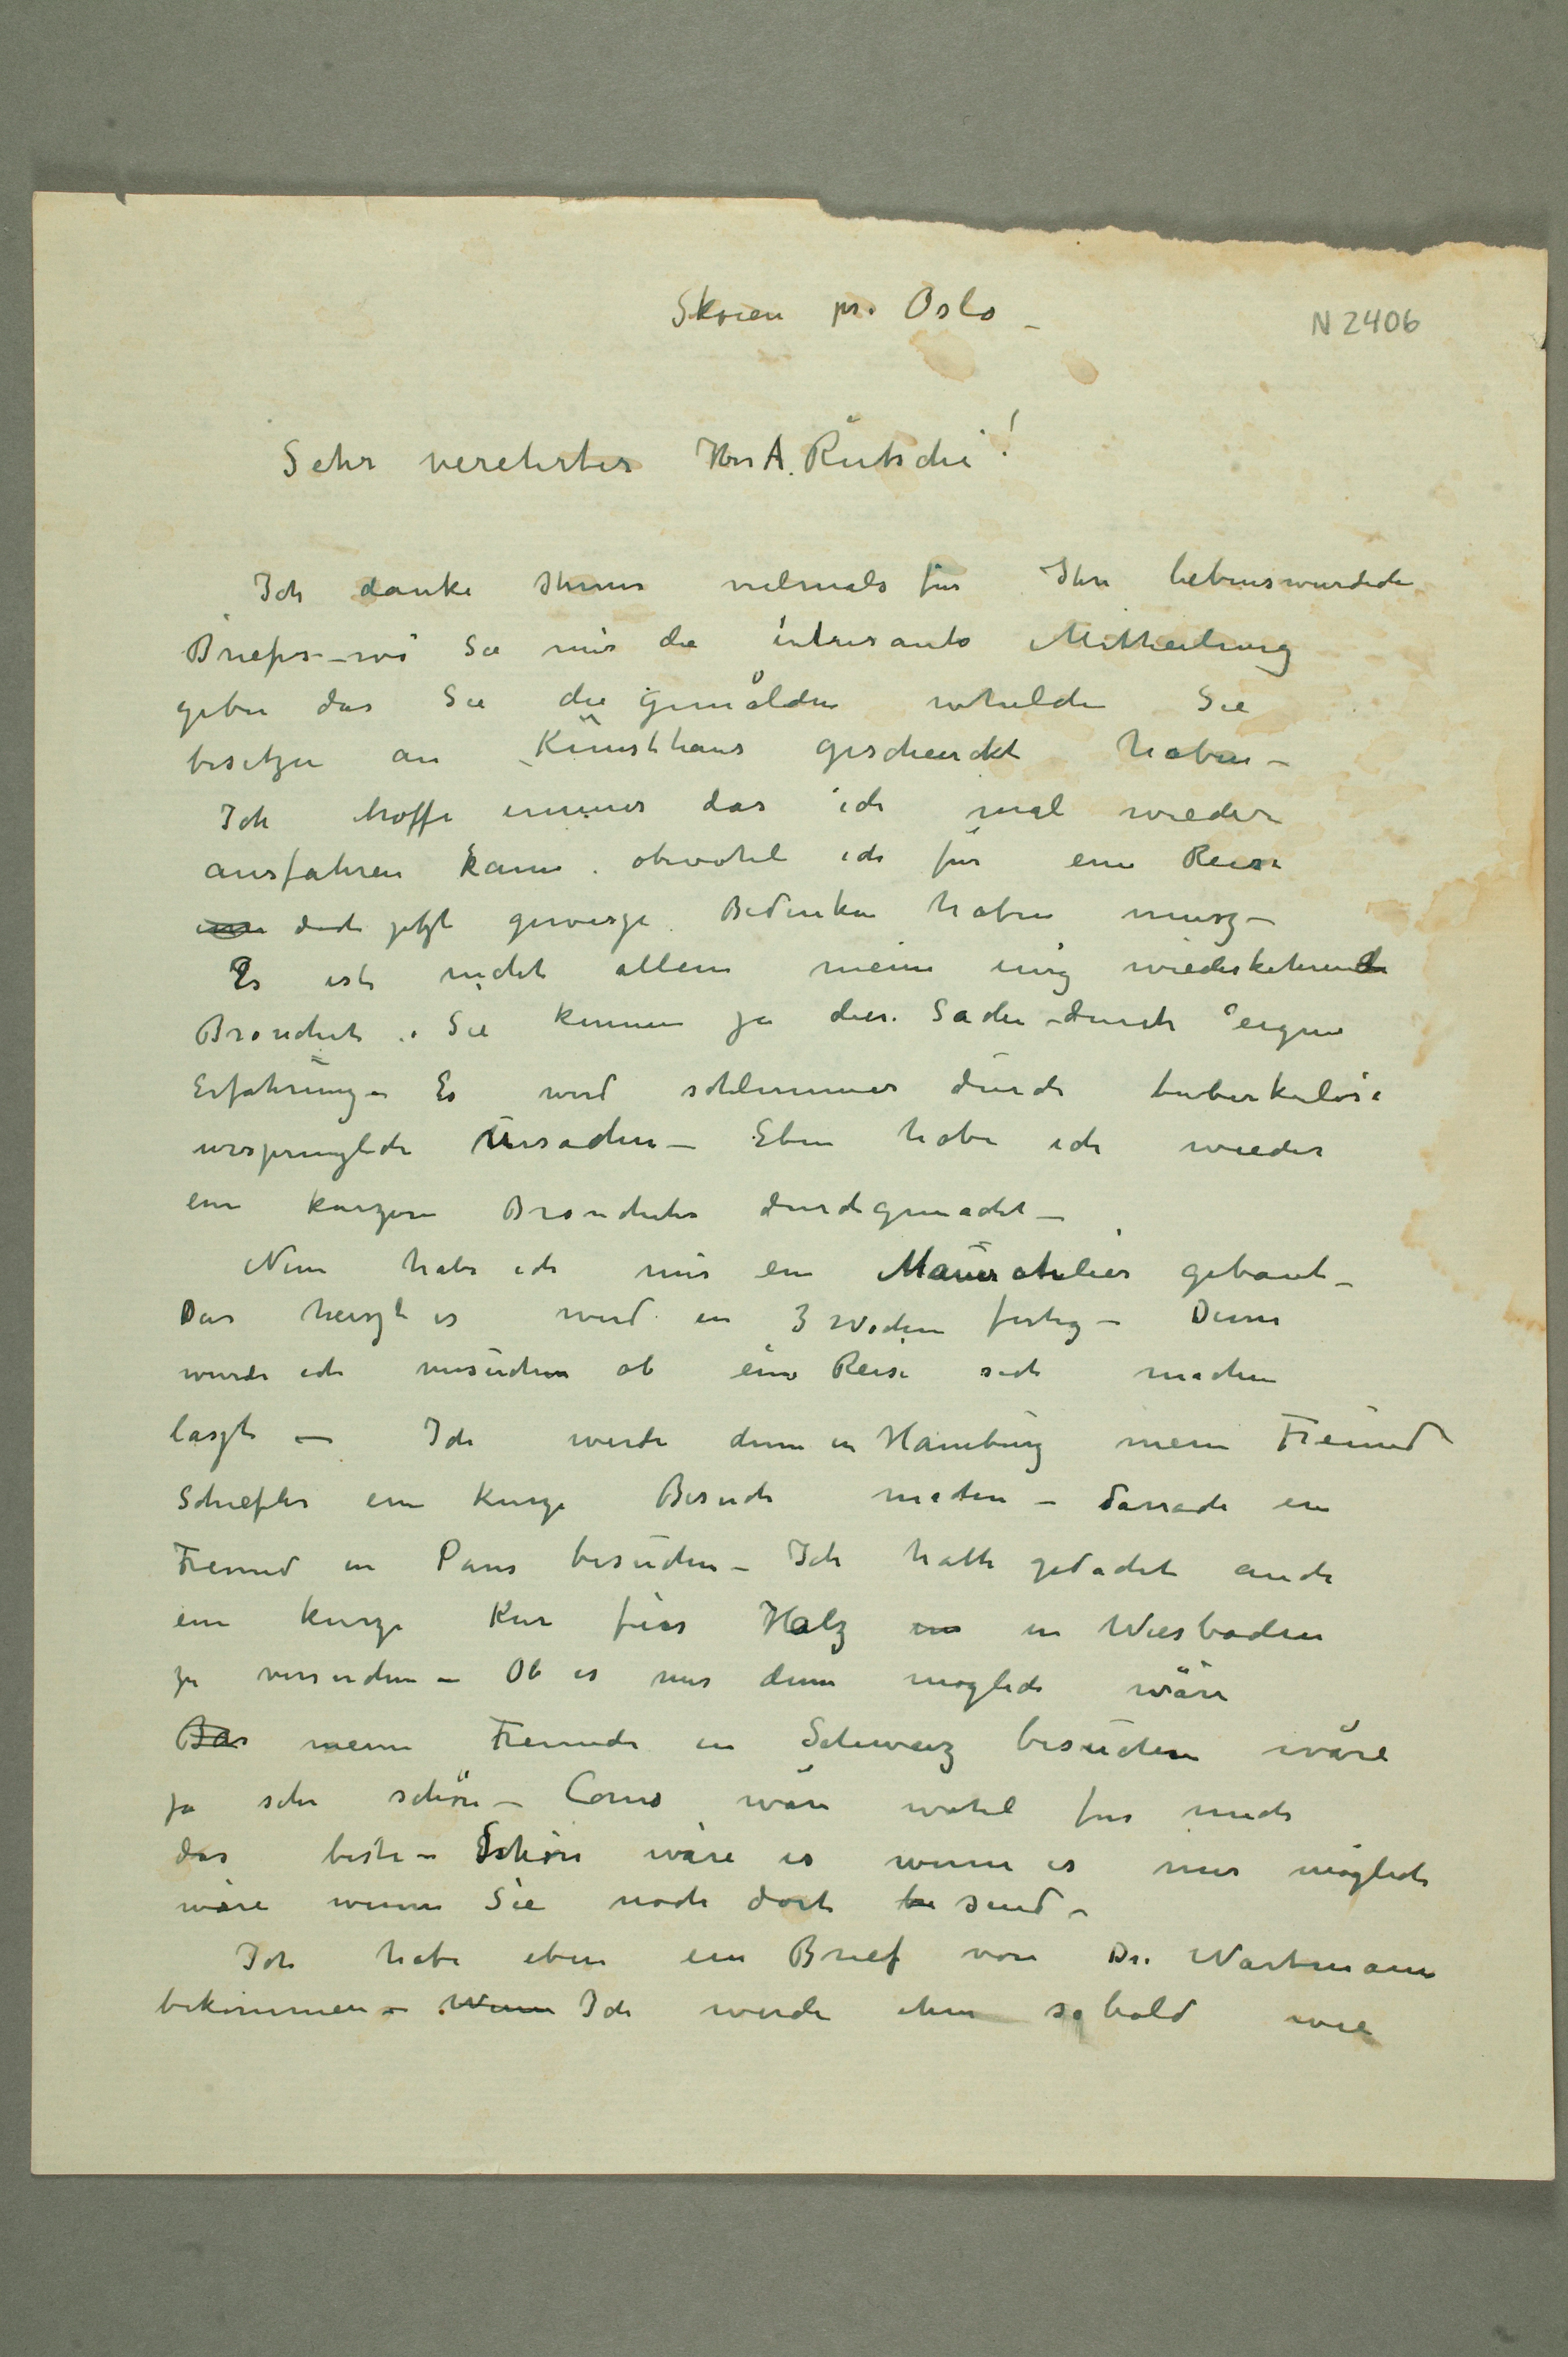 Skøien pr. Oslo –
N 2406
Sehr verehrter Herr A. Rütschi!
Ich danke Ihnen vielmals für Ihre liebenswurdich
Briefes – wo Sie mir die intresante Mittheilung
geben das Sie die gemälden whelche Sie
besitzen an Kŭnsthaus geschenckt haben –
Ich hoffe immer das ich mal wieder
ausfahren kann. obwohl ich für eine Reise
doch jetzt gewisze Bedenken haben musz –
Es ist nicht allein meine ewig wiederkehrende
Bronchit. Sie kennen ja diese Sache durch eigene
Erfahrŭng – Es wird schlimmer durch tuberkulose
ursprunglich Ursachen – Eben habe ich wieder
ein kurzere Bronchite durchgemacht –
Nun habe ich mir ein Maŭeratelier gebaut –
Das heiszt es wird in 3 Wochen fertig – Denn
wurde ich versŭchen ob eine Reise sich machen
laszt – Ich werde denn in Hamburg mein Freŭnd
Schiefler ein kurze Besuch machen – darnach ein
Freund in Paris besŭchen – Ich hatte gedacht auch
ein kurze Kur fürs Halz in Wiesbaden
zu versuchen – Ob es mir denn möglich wäre
meine Freunde in Schweiz besŭchen wäre
ja sehr schön – Como wäre wohl fur mich
das beste – Schön wäre es wenn es mir möglich
wäre wenn Sie noch dort sind –
Ich habe eben ein Brief von Dr. Wartmann
bekommen – Ich werde ihm sobald wie